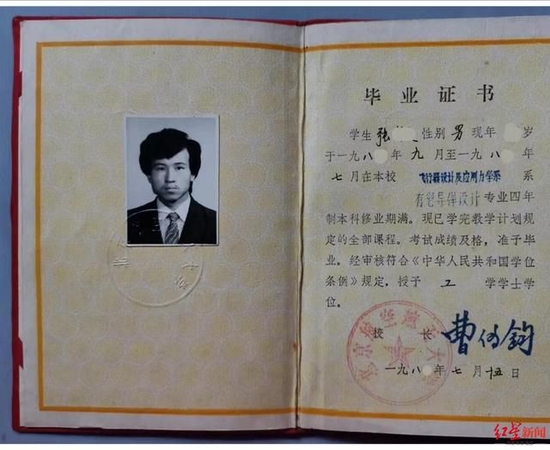 毕业证书
学生 张 性别 男 现年 岁
于一九八 年 九 月至一九八 年
七 月在本校 飞行器设计及应用力学系 系
有翼导弹设计 专业四年
制本科修业期满。现已学完教学计划规
定的全部课程。考试成绩及格，准予毕
业。经审核符合《中华人民共和国学位
条例》规定，授予 工 学学士学
位。
校 长 曹传钧
一九八 年 七 月 十五 日
红星新闻